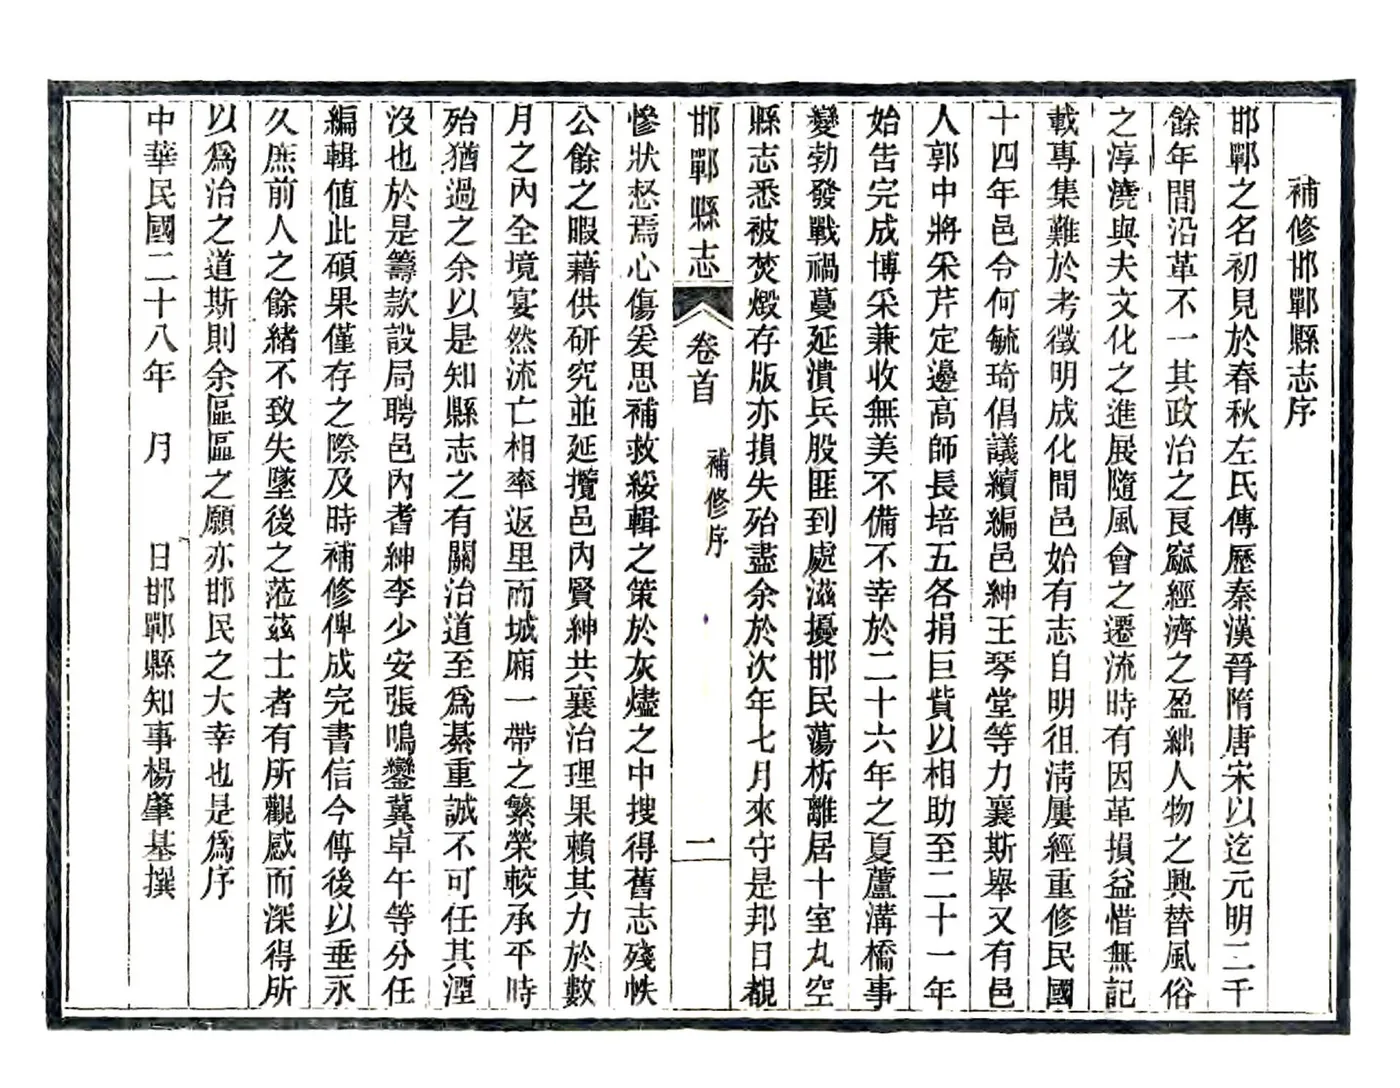 補修邯鄲縣志序
邯鄲之名初見於春秋左氏傳歷秦漢晉隋唐宋以迄元明二千
餘年間沿革不一其政治之良窳經濟之盈絀人物之興替風俗
之淳澆與夫文化之進展隨風會之遷流時有因革損益惜無記
載專集難於考徵明成化間邑始有志自明徂淸屢經重修民國
十四年邑令何毓琦倡議續編邑紳王琴堂等力襄斯舉又有邑
人郭中將采芹定邊高師長培五各捐巨貲以相助至二十一年
始告完成博采兼收無美不備不幸於二十六年之夏蘆溝橋事
變勃發戰禍蔓延潰兵股匪到處滋擾邯民蕩析離居十室九空
縣志悉被焚燬存版亦損失殆盡余於次年七月來守是邦日覩
邯鄲縣志
卷首
補修序
一
慘狀惄焉心傷爰思補救綏輯之策於灰燼之中搜得舊志殘帙
公餘之暇藉供研究並延攬邑內賢紳共襄治理果賴其力於數
月之內全境宴然流亡相率返里而城廂一帶之繁榮較承平時
殆猶過之余以是知縣志之有關治道至爲綦重誠不可任其湮
沒也於是籌款設局聘邑內耆紳李少安張鳴鑾冀卓午等分任
編輯値此碩果僅存之際及時補修俾成完書信今傳後以垂永
久庶前人之餘緒不致失墜後之蒞茲土者有所觀感而深得所
以爲治之道斯則余區區之願亦邯民之大幸也是爲序
中華民國二十八年 月 日邯鄲縣知事楊肇基撰